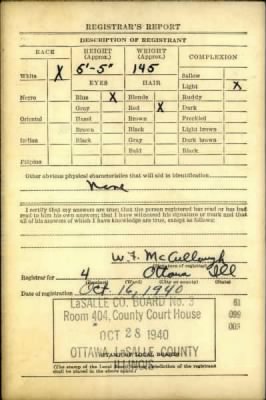 REGISTRAR'S REPORT
DESCRIPTION OF REGISTRANT
RACE HEIGHT (Approx.) WEIGHT (Approx.) COMPLEXION
White X 5'-5" 145 Sallow
EYES HAIR Light X
Negro Blue X Blonde Ruddy
Gray Red X Dark
Oriental Hazel Brown Freckled
Brown Black Light brown
Indian Black Gray Dark brown
Bald Black
Filipino
Other obvious physical characteristics that will aid in identification
None
I certify that my answers are true; that the person registered has read or has had
read to him his own answers; that I have witnessed his signature or mark and that
all of his answers of which I have knowledge are true, except as follows:
W. F. McCullough
(Signature of registrar)
Registrar for 4 Ottawa Ill
(Precinct) (Ward) (City or county) (State)
Date of registration Oct 16, 1940
LaSALLE CO. BOARD No. 3 61
Room 404, County Court House 099
OCT 28 1940
OTTAWA, LaSALLE COUNTY
ILLINOIS
(STAMP OF LOCAL BOARD)
(The stamp of the Local Board having jurisdiction of the registrant
shall be placed in the above space.)